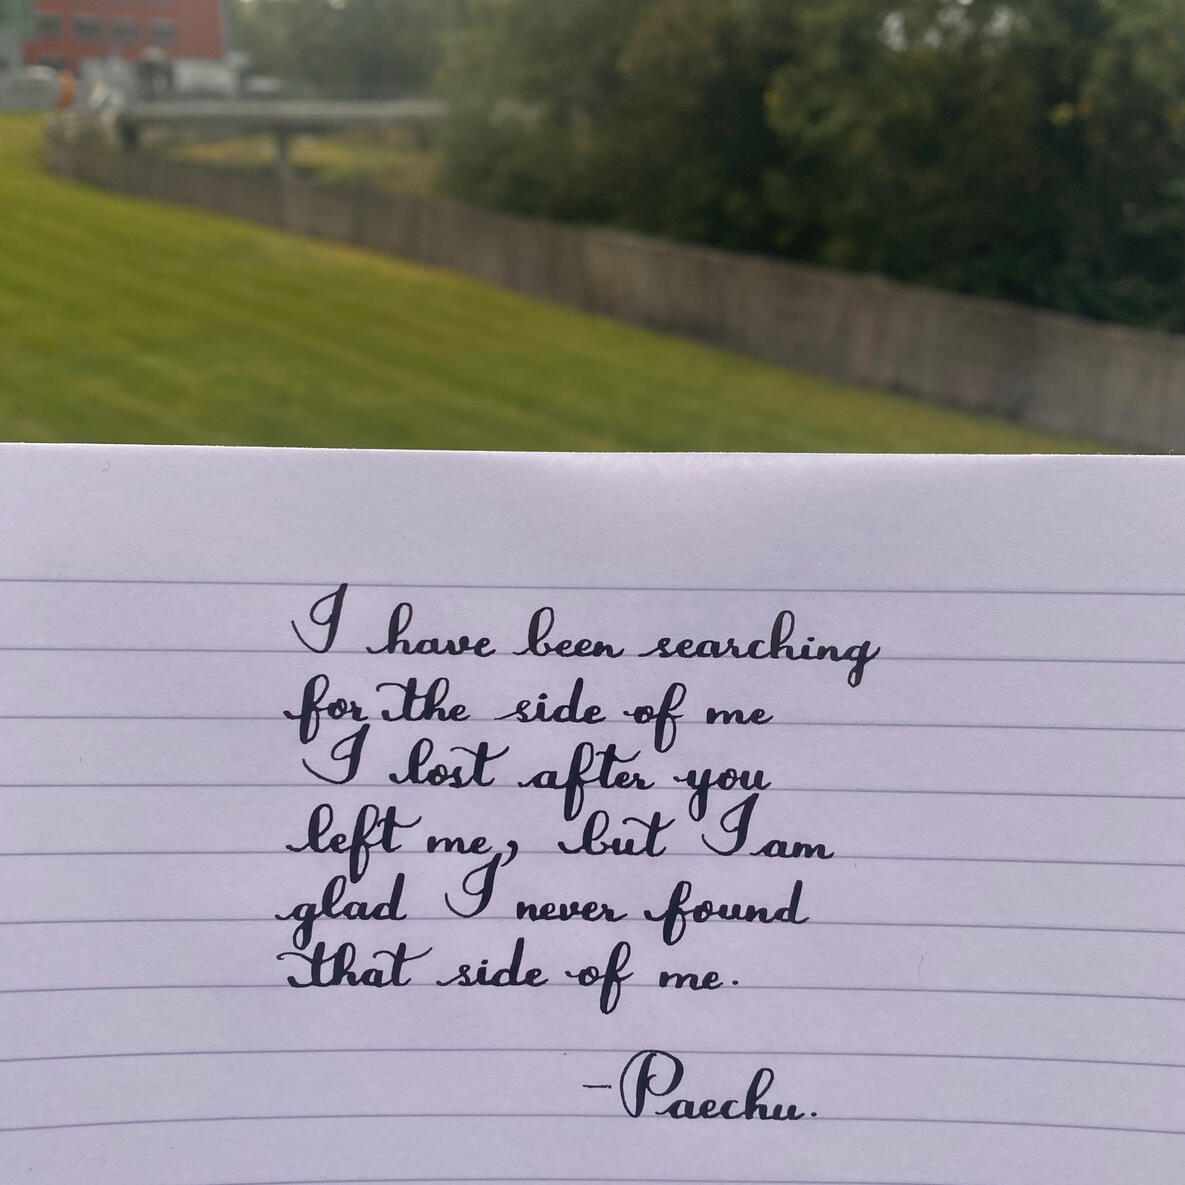 I have been searching
for the side of me
I lost after you
left me, but I am
glad I never found
that side of me.
-Paechu.